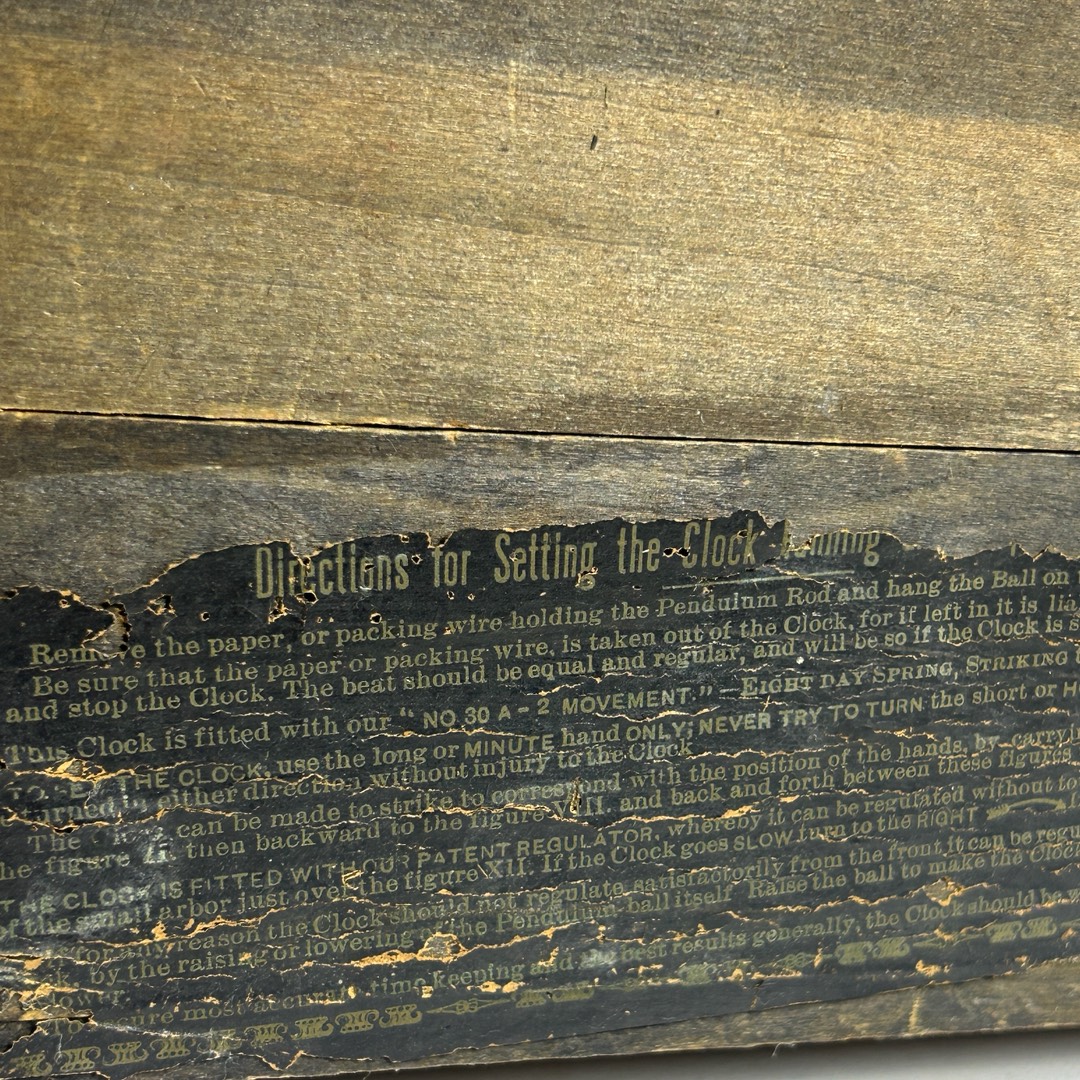 Directions for Setting the Clock Running
Remove the paper, or packing wire holding the Pendulum Rod and hang the Ball on
Be sure that the paper or packing wire, is taken out of the Clock, for if left in it is
and stop the Clock. The beat should be equal and regular, and will be so if the Clock is
This Clock is fitted with our "NO. 30 A-2 MOVEMENT." — EIGHT DAY SPRING, STRIKING
TO SET THE CLOCK, use the long or MINUTE hand ONLY; NEVER TRY TO TURN the short or
turned in either direction without injury to the Clock
The Clock can be made to strike to correspond with the position of the hands, by carrying
the figure then backward to the figure VIII, and back and forth between these figures
THE CLOCK IS FITTED WITH OUR PATENT REGULATOR, whereby it can be regulated without
of the small arbor just over the figure XII. If the Clock goes SLOW turn to the RIGHT
for any reason the Clock should not regulate satisfactorily from the front, it can be
by the raising or lowering of the Pendulum ball itself. Raise the ball to make the Clock
lower.
To secure most accurate time keeping and the best results generally, the Clock should be